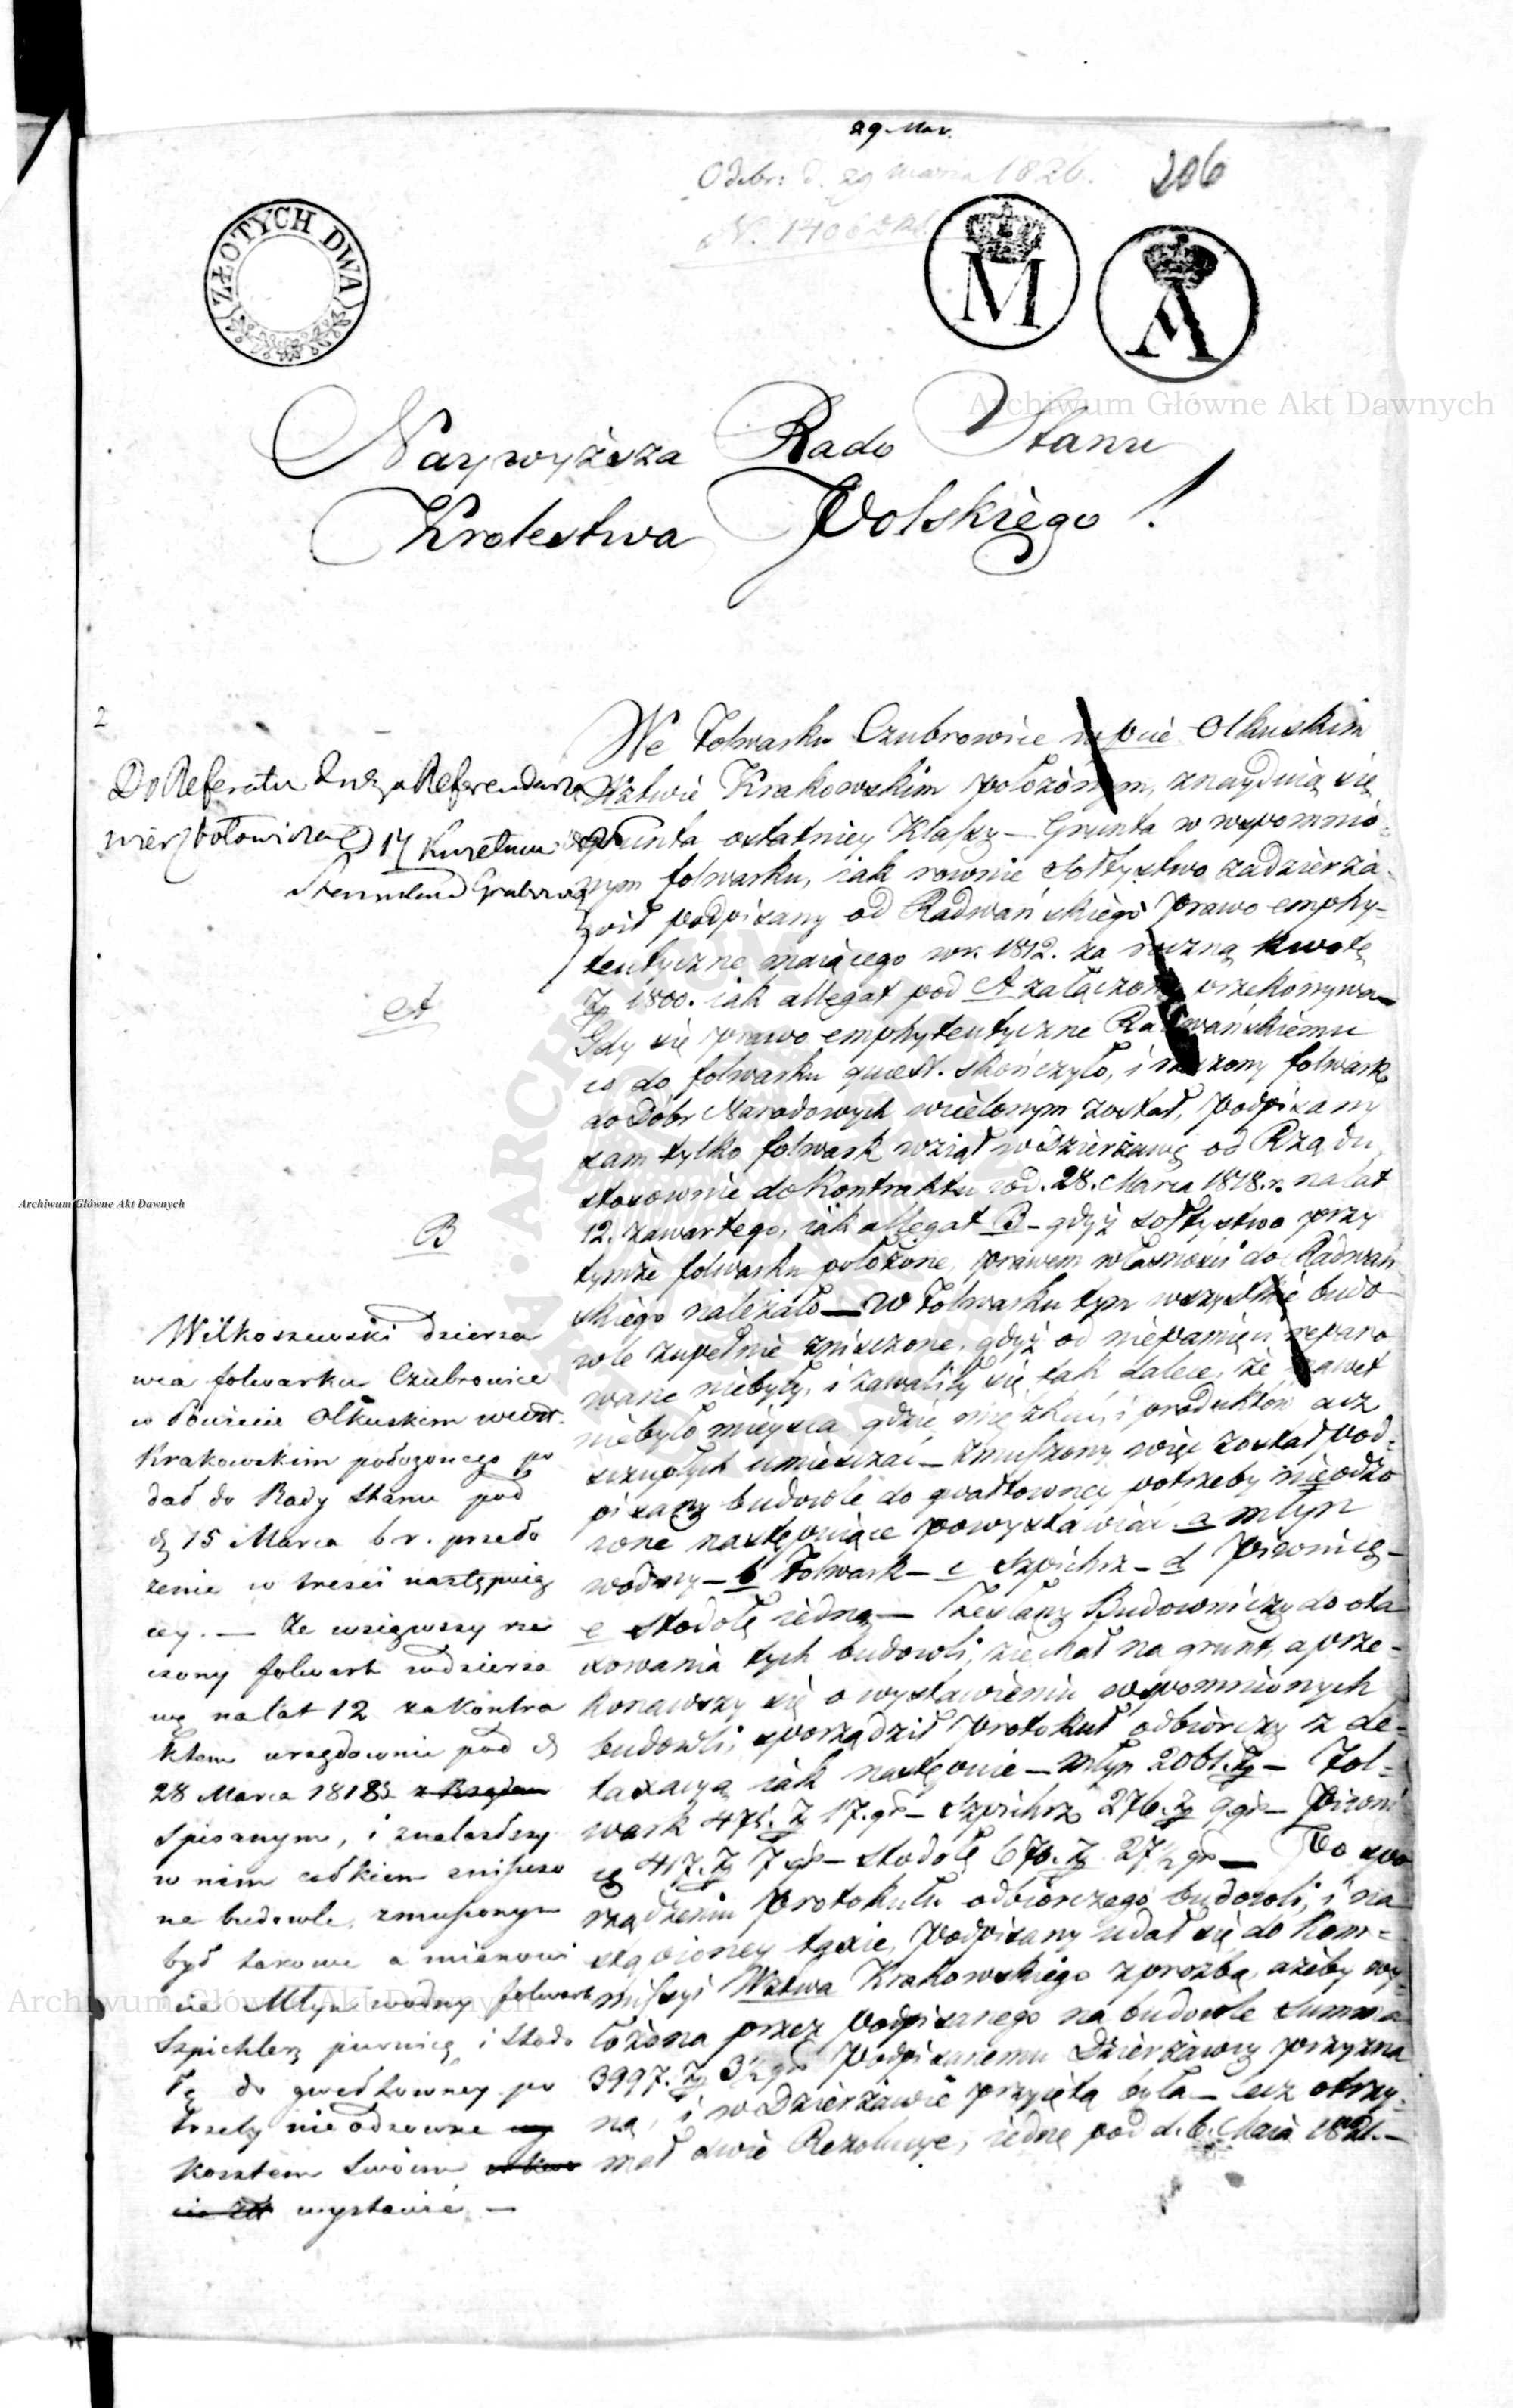 29 Mar.
Odebr: d. 29 marca 1826.
206
N. 14062
ZŁOTYCH DWA
M
A
Naywyższa Rado Stanu
Krolestwa Polskiego!
2
Do Referatu Referendarza
14 Kwietnia
A
B
Wilkoszewski dzierża
wca folwarku Czubrowice
w Powiecie Olkuskim wewdz.
Krakowskim położonego po
dał do Rady Stanu pod
d 15 Marca b r. przeło
żenie w treści następuią
cey. — Że wziąwszy rze
czony folwark wdzierża
wę na lat 12 za Kontra
ktem urzędownie pod d
28 Marca 1818 z Rządem
spisanym, i znalazłszy
w nim całkiem zniszczo
ne budowle, zmuszonym
był takowe a mianowi
cie Młyn wodny folwark
Szpichlerz piwnicę i Stodo
łę do gwałtowney po
trzeby nieodzowne
kosztem swoim
wystawić —
We Folwarku Czubrowice wpcie Olkuskim
Wztwie Krakowskim położonym, znayduią się
grunta ostatniey Klassy — Grunta w wspomnio-
nym folwarku, iak rownie Sołtystwo zadzierża-
wił podpisany od Radwańskiego prawo emphy-
teutyczne maiącego wr. 1812. za roczną kwotę
Zp 1800. iak allegat pod A załączony przekonywa —
Gdy się prawo emphyteutyczne Radwańskiemu
co do folwarku quest. skończyło, i rzeczony folwark
do Dóbr Narodowych wcielonym został, podpisany
sam tylko folwark wziął w Dzierżawę od Rządu
stosownie do Kontraktu zd. 28. Marca 1818. r. na lat
12. zawartego, iak allegat B — gdyż sołtystwo przy
tymże folwarku położone, prawem własności do Radwań
skiego należało — W Folwarku tym wszystkie budo
wle zupełnie zniszczone, gdyż od niepamięci reparo
wane niebyły, i zawaliły się tak dalece, że nawet
niebyło mieysca gdzie mieszkać, i produktów acz
szczupłych umieszczać — zmuszony więc został pod-
pisany budowle do gwałtowney potrzeby nieodzo
wne następuiące powystawiać. a młyn
wodny — b Folwark — c Szpichrz — d Piwnicę —
e Stodołę iedną — Zesłany Budowniczy do ota
xowania tych budowli, ziechał na grunt, a prze-
konawszy się o wystawieniu wspomnionych
budowli, sporządził protokuł odbiorczy z de-
taxacyą iak następuie — Młyn 2061. Zp — Fol-
wark 475. Zp 17. gr — Szpichrz 276. Zp 9 gr — Piwni
cę 417. Zp 7 gr — Stodołę 670. Zp 27½ gr — Po spo
rządzeniu protokułu odbiorczego budowli, i na
stąpioney taxie, podpisany udał się do Kom-
missyi Wztwa Krakowskiego z prozbą, ażeby wy-
łożona przez podpisanego na budowle summa
3997. Zp 3½ gr Podpisanemu Dzierżawcy przyzna
ną, i w Dzierżawie przyiętą była — lecz otrzy-
mał dwie Rezolucye, iedną pod d. 6. Maia 1821. —